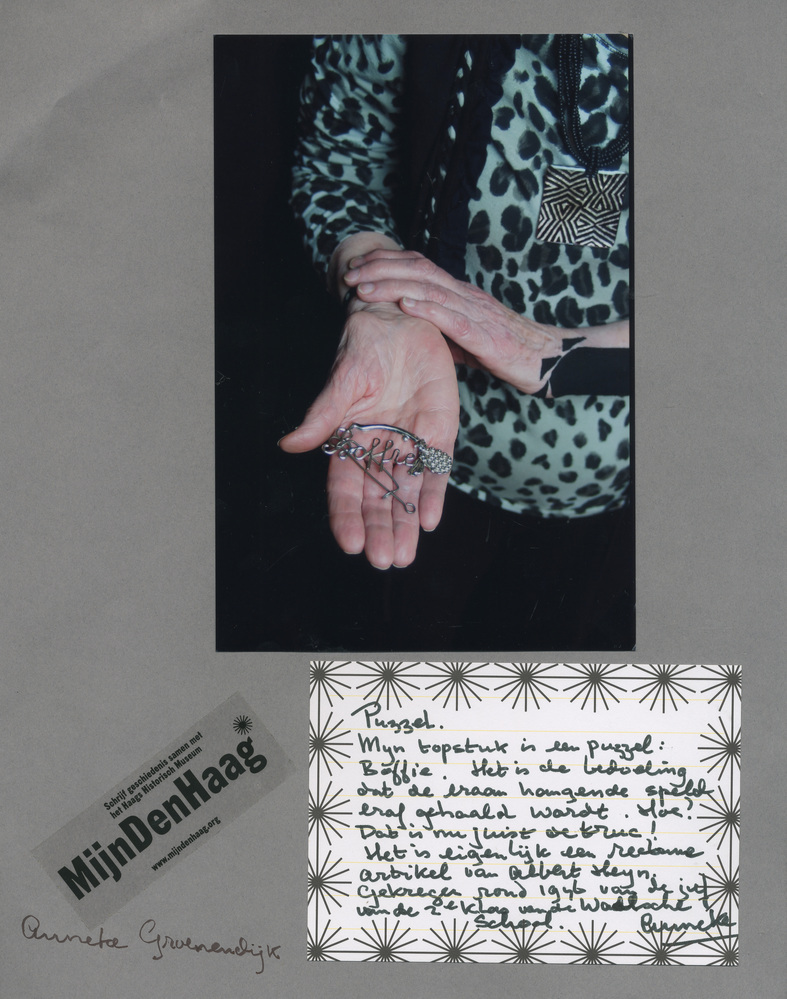 Boffie
Puzzel.
Mijn topstuk is een puzzel:
Boffie. Het is de bedoeling
dat de eraan hangende speld
eraf gehaald wordt. Hoe?
Dat is nu juist de truc!
Het is eigenlijk een reclame
artikel van Albert Heyn.
Gekregen rond 1946 van de juf
van de 2e klas van de
School. Anneke
Schrijf geschiedenis samen met
het Haags Historisch Museum
MijnDenHaag
www.mijndenhaag.org
Anneke Groenendijk